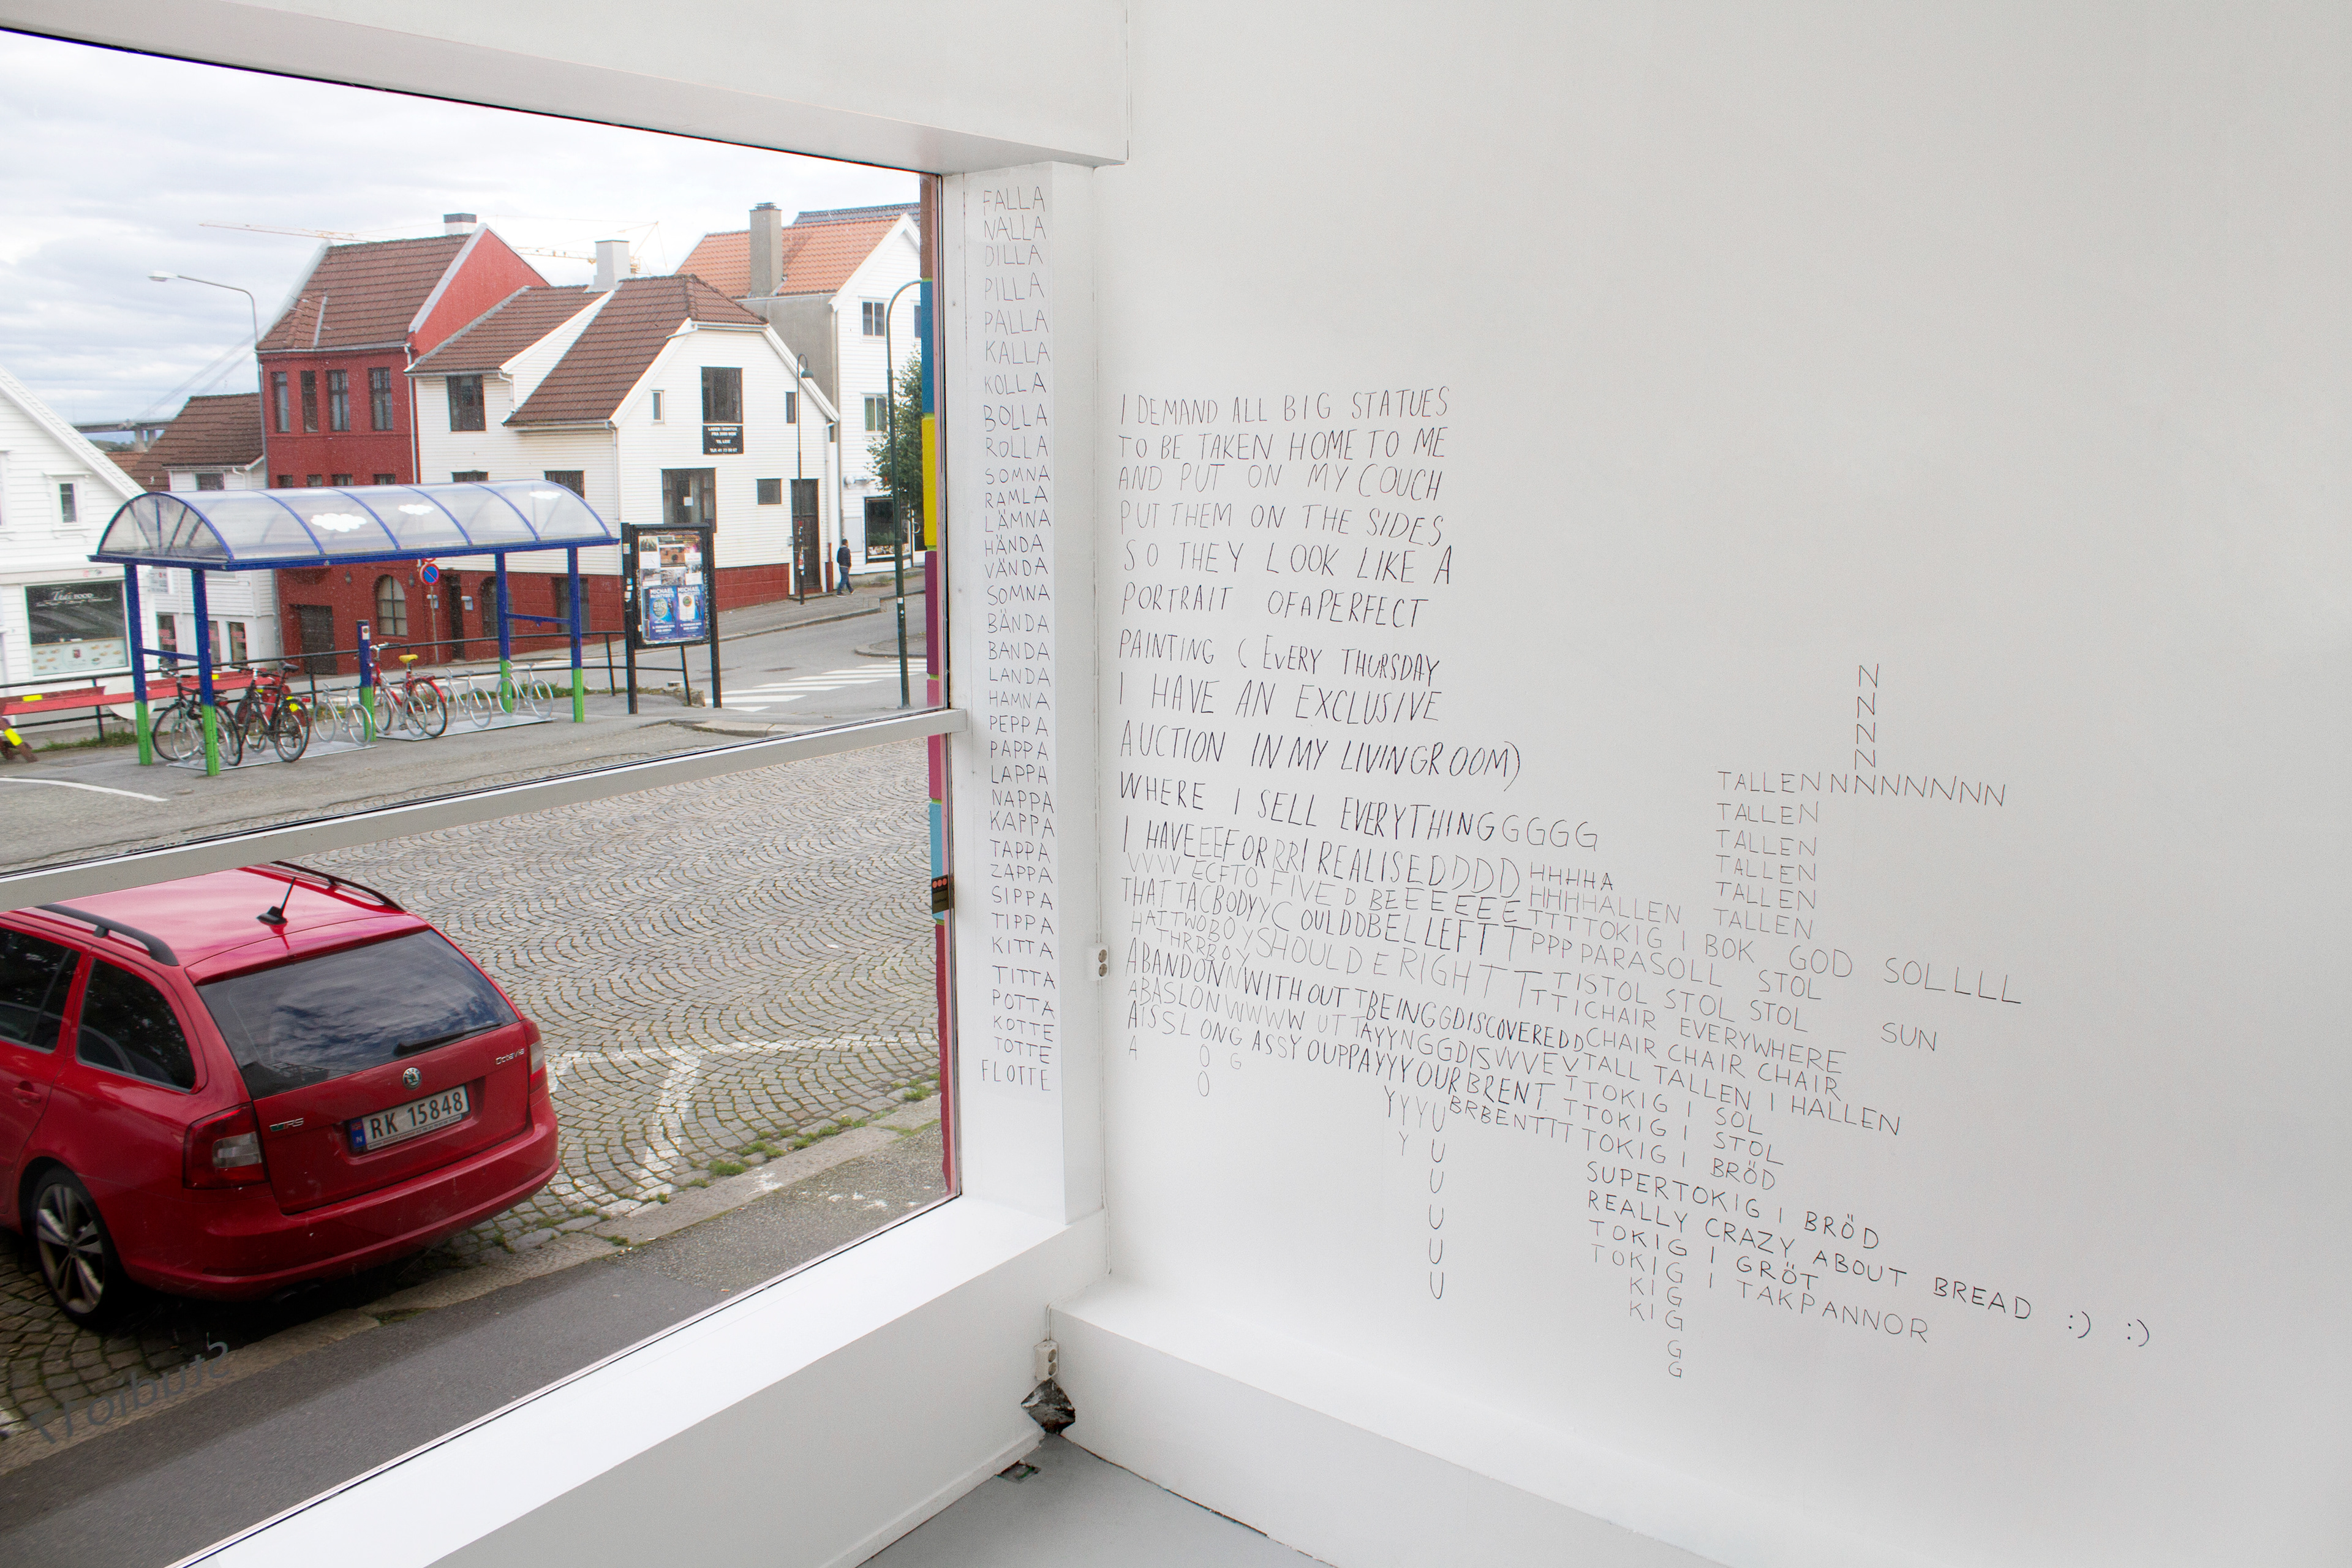 FALLA
NALLA
DILLA
PILLA
PALLA
KALLA
KOLLA
BOLLA
ROLLA
SOMNA
RAMLA
LÄMNA
HÄNDA
VÄNDA
SOMNA
BÄNDA
BANDA
LANDA
HAMNA
PEPPA
PAPPA
LAPPA
NAPPA
KAPPA
TAPPA
ZAPPA
SIPPA
TIPPA
KITTA
TITTA
POTTA
KOTTE
TOTTE
FLOTTE
I DEMAND ALL BIG STATUES
TO BE TAKEN HOME TO ME
AND PUT ON MY COUCH
PUT THEM ON THE SIDES
SO THEY LOOK LIKE A
PORTRAIT OFAPERFECT
PAINTING ( EVERY THURSDAY
I HAVE AN EXCLUSIVE
AUCTION IN MY LIVINGROOM)
WHERE I SELL EVERYTHINGGGGG
I HAVEEEFORRRI REALISEDDDD HHHHA
VVVV ECFTO FIVED BEEEEEE HHHHALLEN
THAT TAGBODYYC OULDDBELLEFTT TTTTOKIG I BOK GOD SOLLLL
HATTWOBOYSHOULD E RIGHTT PPP PARASOLL STOL
THRRBOY TTISTOL STOL STOL SUN
ABANDONNWITHOUTTBEINGGDISCOVEREDD TTICHAIR EVERYWHERE
ABASLONWWWW UTTAYYNGGDISVVVEV CHAIR CHAIR CHAIR
AISSLONG ASSY OUPPAYYYOURBRENT TALL TALLEN I HALLEN
A
O
G
O
YYYU BRBENTTT
Y U
U
U
U
U
U
TTOKIG I SOL
TTOKIG I STOL
TOKIG I BRÖD
SUPERTOKIG I BRÖD
REALLY CRAZY ABOUT BREAD :) :)
TOKIG I GRÖT
TOKIG I TAKPANNOR
KIG
KIG
G
G
N
N
N
N
TALLENNNNNNNN
TALLEN
TALLEN
TALLEN
TALLEN
TALLEN
Thai FOOD
MICHAEL
MICHAEL
Octavia
RS
N RK 15848
Studio 17